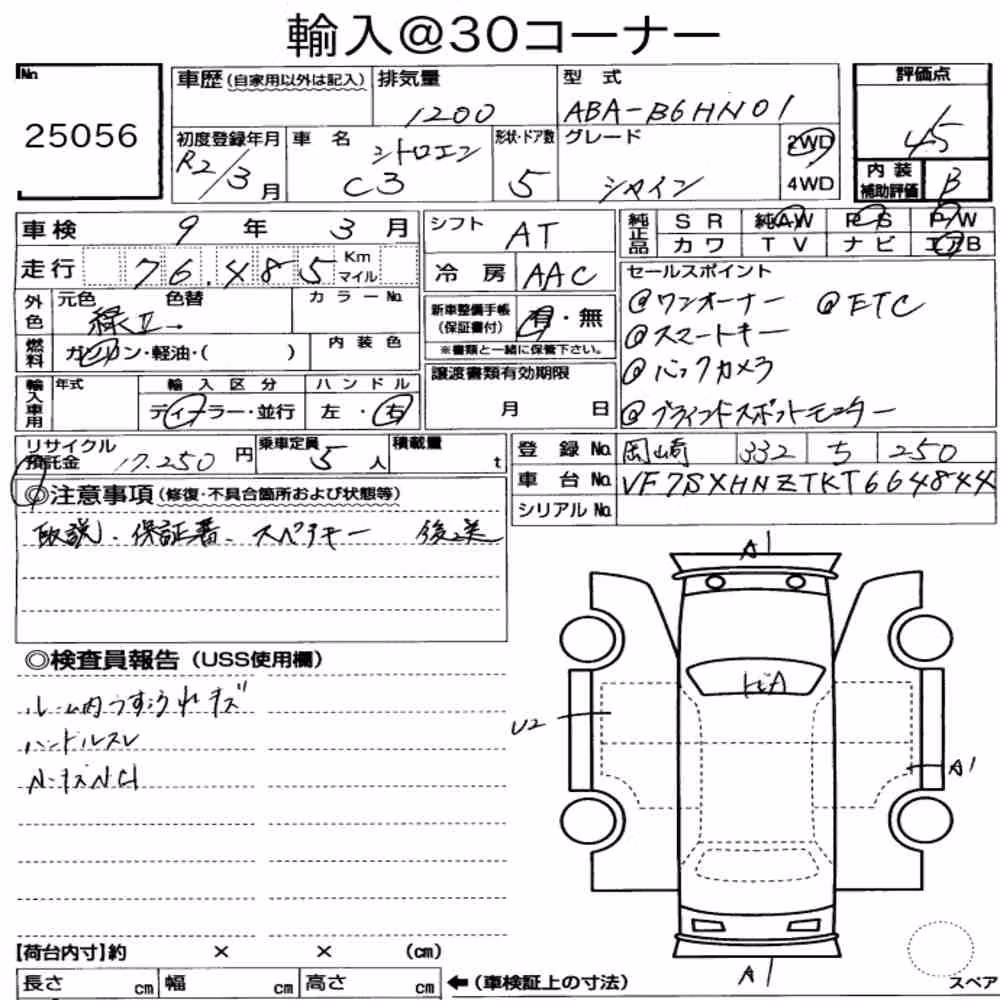 輸入@30コーナー
No. 25056
車歴(自家用以外は記入) 排気量 1200 型式 ABA-B6HN01 評価点 4.5
初度登録年月 R2/3月 車名 シトロエン C3 形状・ドア数 5 グレード シャイン 2WD 4WD 内装補助評価 B
車検 9年 3月 シフト AT 純正品 SR 純AW PS PW
走行 76.485 Km マイル 冷房 AAC カワ TV ナビ エアB
外色 元色 緑II 色替 カラーNo.
新車整備手帳(保証書付) 有・無
※書類と一緒に保管下さい。
燃料 ガソリン・軽油・( ) 内装色
輸入車用 年式 輸入区分 ディーラー・並行 ハンドル 左・右
譲渡書類有効期限 月 日
セールスポイント
@ワンオーナー @ETC
@スマートキー
@バックカメラ
@ブラインドスポットモニター
リサイクル預託金 17.250円 乗車定員 5人 積載量 t
登録No. 岡崎 332 ち 250
車台No. VF7SXHNZTKT664844
シリアルNo.
◎注意事項(修復・不具合箇所および状態等)
取説、保証書、スペアキー 後送
◎検査員報告(USS使用欄)
ルーム内うすよごれキズ
ハンドルスレ
A1
U2
A1
A1
【荷台内寸】約 × × (cm)
長さ cm 幅 cm 高さ cm ←(車検証上の寸法)
スペア